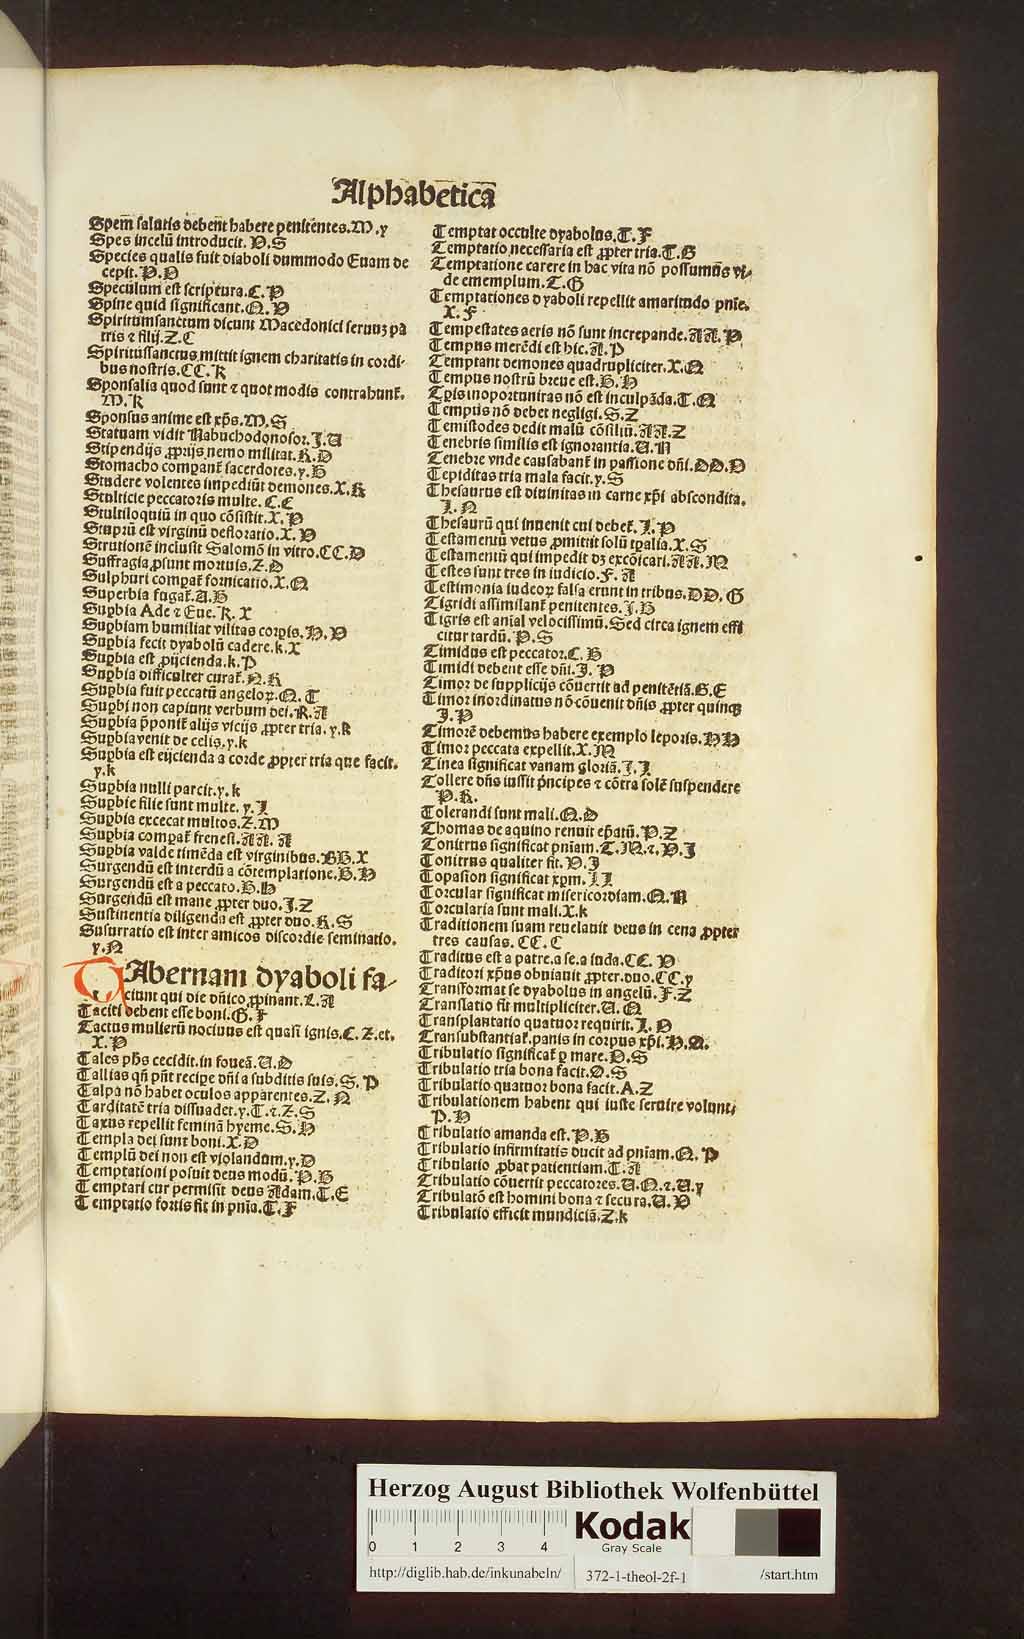 Alphabetica
Spem̄ salutis debent habere penitentes.M.y
Spes incelū introducit.P.S
Species qualis fuit diaboli dummodo Euam de
cepit.P.D
Speculum est scriptura.C.P
Spine quid significant.Q.Y
Spiritumsanctum dicunt Macedonici seruuꝫ pa
tris ⁊ filij.Z.C
Spiritussanctus mittit ignem charitatis in cordi-
bus nostris.CC.K
Sponsalia quod sunt ⁊ quot modis contrahunt̄.
M.K
Sponsus anime est xp̄s.M.S
Statuam vidit Nabuchodonosor.J.U
Stipendijs ꝓprijs nemo militat.K.D
Stomacho compant̄ sacerdotes.y.B
Studere volentes impediūt demones.X.K
Stulticie peccatoris multe.C.C
Stultiloquiū in quo cōsistit.X.P
Stuprū est virginū defloratio.X.Y
Strutionē inclusit Salomō in vitro.CC.D
Suffragia ꝓsunt mortuis.Z.D
Sulphuri compat̄ fornicatio.X.Q
Superbia fugat̄.A.B
Suꝑbia Ade ⁊ Eue.R.X
Suꝑbiam humiliat vilitas corꝑis.H.Y
Suꝑbia fecit dyabolū cadere.k.X
Suꝑbia est ꝓijcienda.k.P
Suꝑbia difficulter curat̄.N.K
Suꝑbia fuit peccatū angeloꝝ.Q.T
Suꝑbi non capiunt verbum dei.R.A
Suꝑbia p̄ponit̄ alijs vicijs ꝓpter tria.y.k
Suꝑbia venit de celis.y.k
Suꝑbia est eijcienda a corde ꝓpter tria que facit.
y.k
Suꝑbia nulli parcit.y.k
Suꝑbie filie sunt multe.y.J
Suꝑbia excecat multos.Z.M
Suꝑbia compat̄ frenesi.AA.A
Suꝑbia valde timēda est virginibus.BB.X
Surgendū est interdū a cōtemplatione.H.H
Surgendū est a peccato.H.H
Surgendū est mane ꝓpter duo.J.Z
Sustinentia diligenda est ꝓpter duo.K.S
Susurratio est inter amicos discordie seminatio.
y.N
TAbernam dyaboli fa-
ciunt qui die dn̄ico ꝓpinant.L.A
Taciti debent esse boni.G.F
Tactus mulierū nociuus est quasi ignis.C.Z.et.
X.P
Tales ph̄s cecidit in foueā.U.D
Tallias qn̄ pn̄t recipe dn̄i a subditis suis.S.P
Talpa nō habet oculos apparentes.Z.N
Tarditatē tria dissuadet.y.T.⁊.Z.S
Taxus repellit feminā hyeme.S.H
Templa dei sunt boni.X.D
Templū dei non est violandum.y.D
Temptationi posuit deus modū.P.B
Temptari cur permisit deus Adam.T.E
Temptatio fortis fit in pn̄ia.T.F
Temptat occulte dyabolus.T.F
Temptatio necessaria est ꝓpter tria.T.G
Temptatione carere in hac vita nō possumus vi-
de ememplum.T.G
Temptationes dyaboli repellit amaritudo pn̄ie.
X.F
Tempestates aeris nō sunt increpande.AA.P
Tempus merēdi est hic.A.P
Temptant demones quadrupliciter.X.Q
Tempus nostrū breue est.H.H
Tp̄is inoportunitas nō est inculpāda.T.Q
Tempus nō debet negligi.S.Z
Temistodes dedit malū cōsiliū.AA.Z
Tenebris similis est ignorantia.U.N
Tenebre vnde causabant̄ in passione dn̄i.DD.Y
Tepiditas tria mala facit.y.S
Thesaurus est diuinitas in carne xp̄i abscondita.
J.N
Thesaurū qui inuenit cui debet̄.J.P
Testamentū vetus ꝓmittit solū tp̄alia.X.S
Testamentū qui impedit dꝫ excōicari.AA.M
Testes sunt tres in iudicio.F.A
Testimonia iudeoꝝ falsa erunt in tribus.DD.G
Tigridi assimilant̄ penitentes.J.B
Tigris est anīal velocissimū. Sed circa ignem effi
citur tardū.P.S
Timidus est peccator.C.B
Timidi debent esse dn̄i.J.P
Timor de supplicijs cōuertit ad penitētiā.G.E
Timor inordinatus nō cōuenit dn̄is ꝓpter quinqꝫ
J.P
Timorē debemus habere exemplo leporis.HH
Timor peccata expellit.X.M
Tinea significat vanam gloriā.J.J
Tollere dn̄s iussit p̄ncipes ⁊ cōtra solē suspendere
P.K.
Tolerandi sunt mali.Q.D
Thomas de aquino renuit ep̄atū.P.Z
Tonitrus significat pn̄iam.T.M.⁊.Y.J
Tonitrus qualiter fit.Y.J
Topasion significat xp̄m.JJ
Torcular significat misericordiam.Q.N
Torcularia sunt mali.X.k
Traditionem suam reuelauit deus in cena ꝓpter
tres causas.CC.C
Traditus est a patre.a se.a iuda.CC.Y
Traditori xp̄us obuiauit ꝓpter duo.CC.y
Transformat se dyabolus in angelū.F.Z
Translatio fit multipliciter.U.Q
Transplantatio quatuor requirit.J.D
Transubstantiat̄ panis in corpus xp̄i.H.Q.
Tribulatio significat̄ ꝑ mare.D.S
Tribulatio tria bona facit.O.S
Tribulatio quatuor bona facit.A.Z
Tribulationem habent qui iuste seruire volunt.
P.H
Tribulatio amanda est.P.B
Tribulatio infirmitatis ducit ad pn̄iam.Q.P
Tribulatio ꝓbat patientiam.T.A
Tribulatio cōuertit peccatores.U.Q.⁊.U.y
Tribulatō est homini bona ⁊ secura.U.Y
Tribulatio efficit mundiciā.Z.k
Herzog August Bibliothek Wolfenbüttel
0 1 2 3 4
Kodak
Gray Scale
http://diglib.hab.de/inkunabeln/
372-1-theol-2f-1
/start.htm